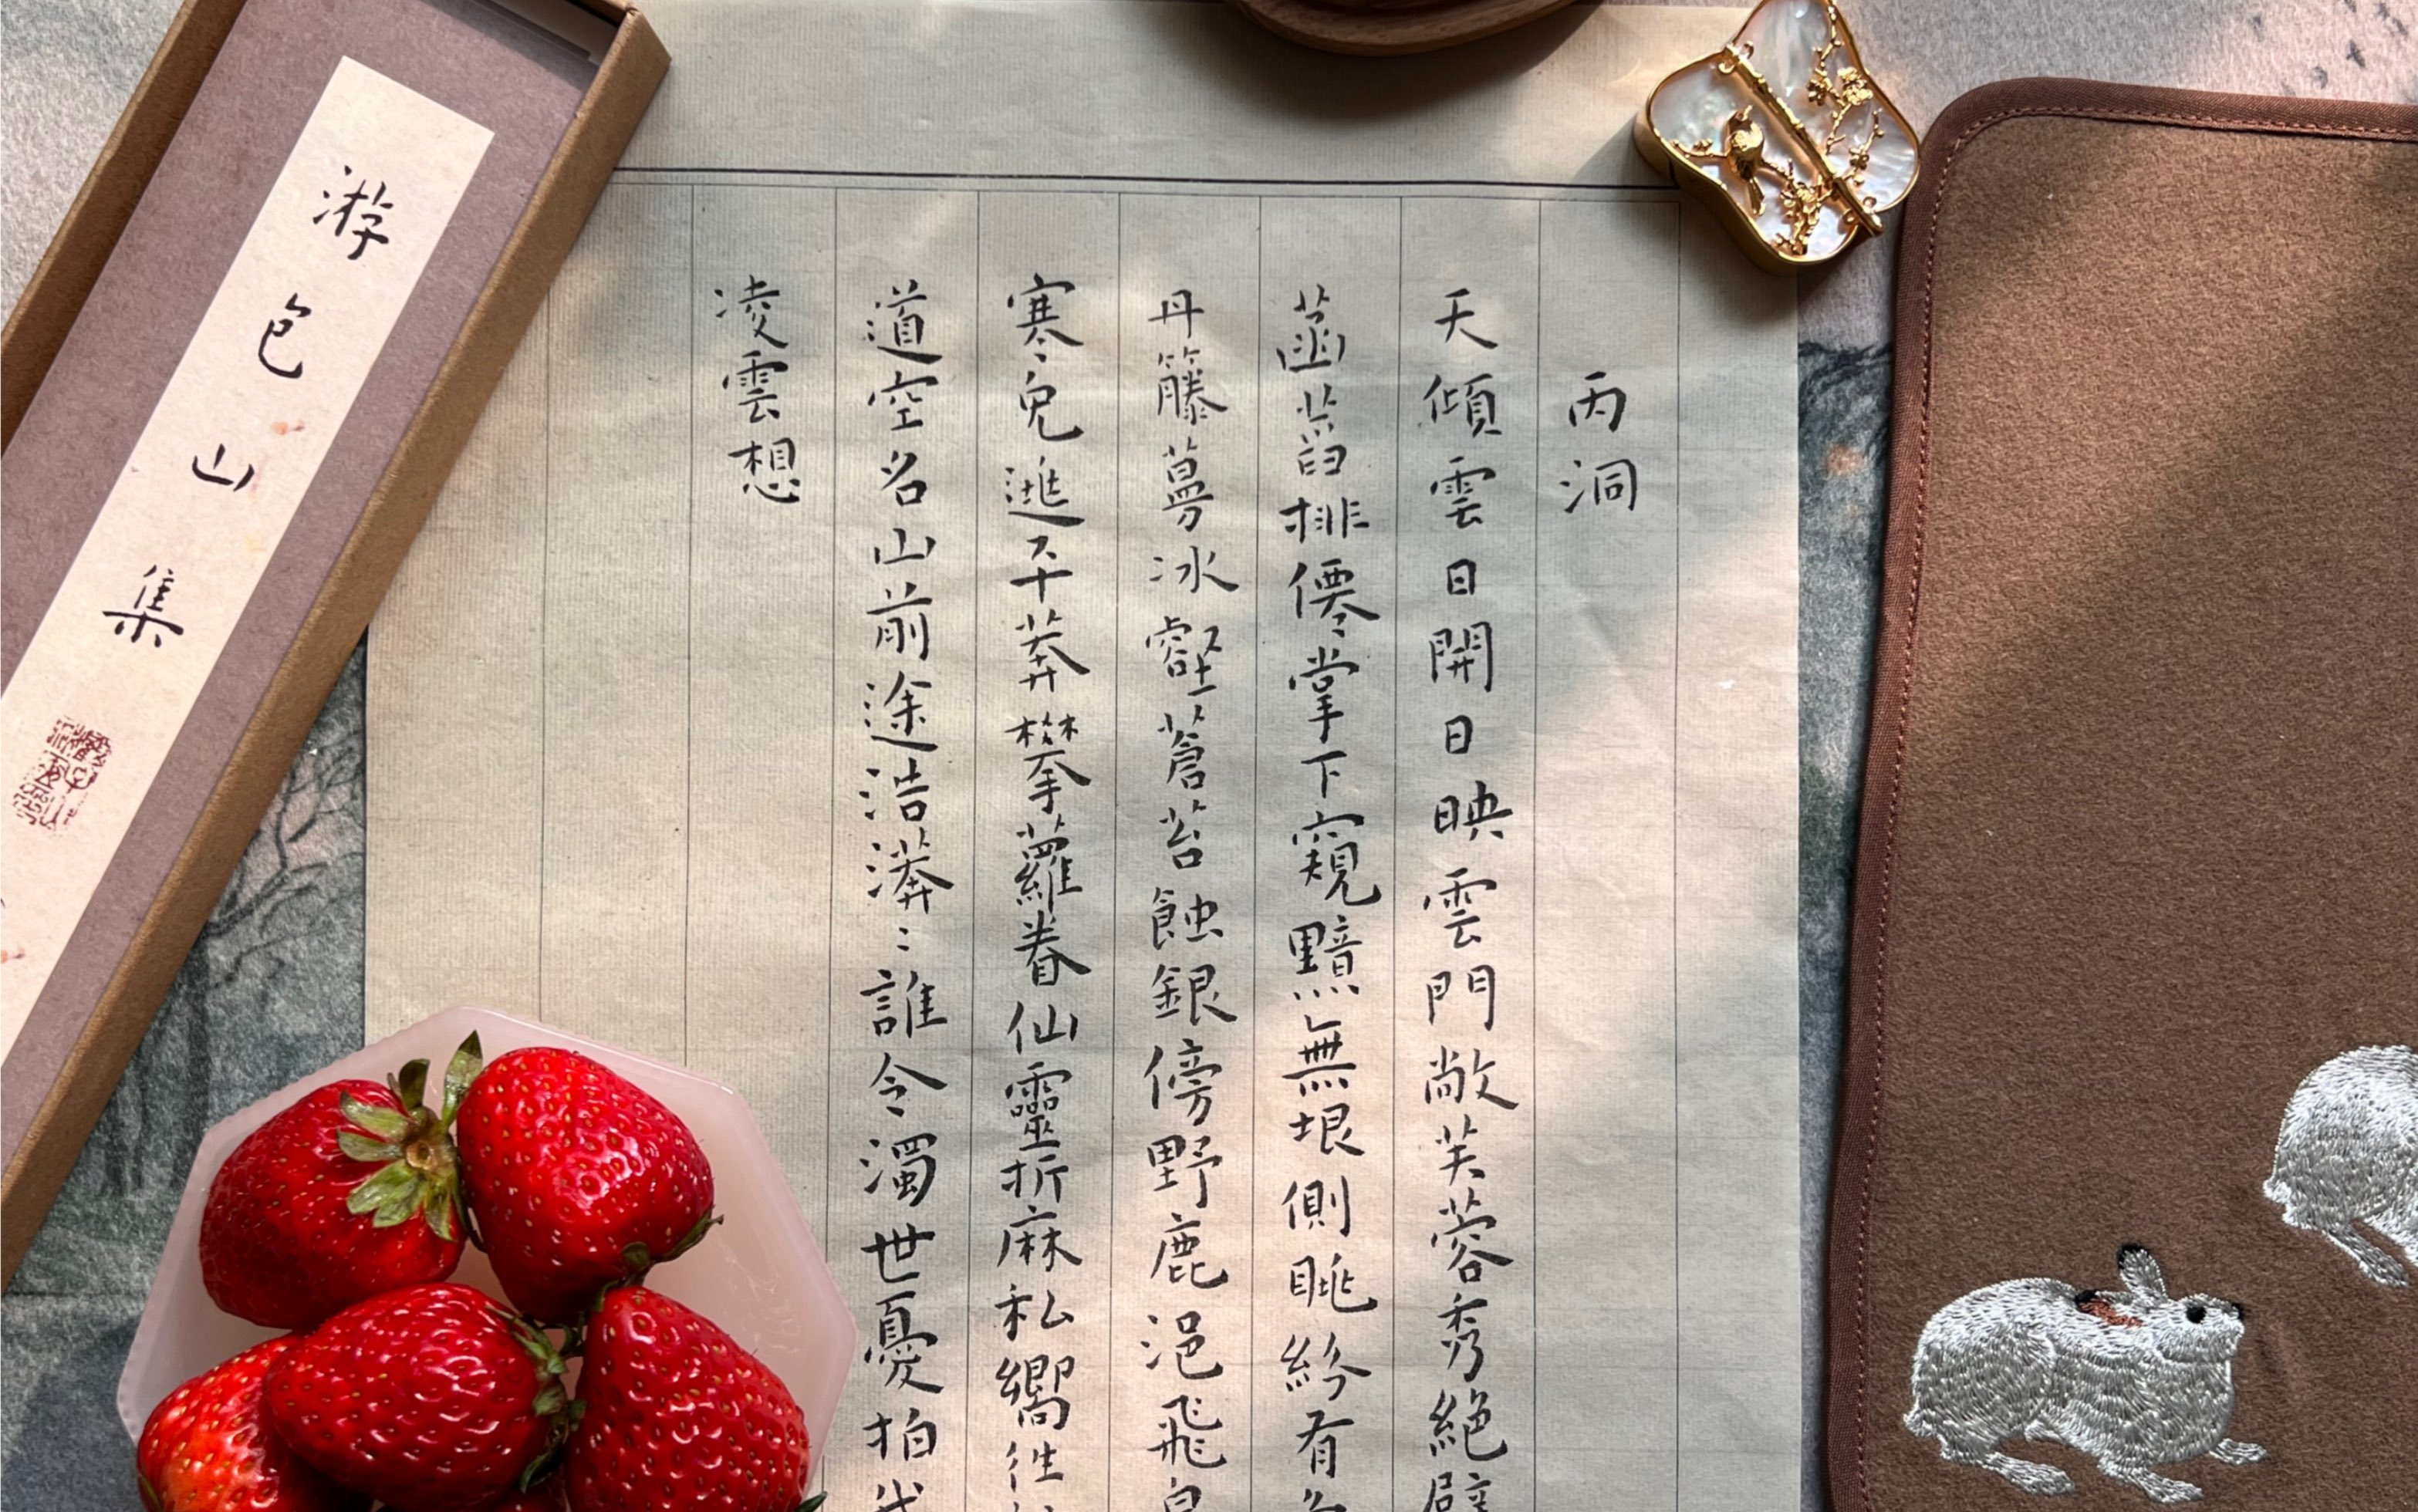 丙洞
天傾雲日開日映雲門敞芙蓉秀絕
菡萏排僊掌下窺黯無垠側眺紛有
丹籐蔓冰壑蒼苔蝕銀傍野鹿浥飛
寒兔逃平莽攀蘿眷仙靈折麻私嚮往
道空名山前途浩漭〻誰令濁世憂拍
凌雲想
游包山集